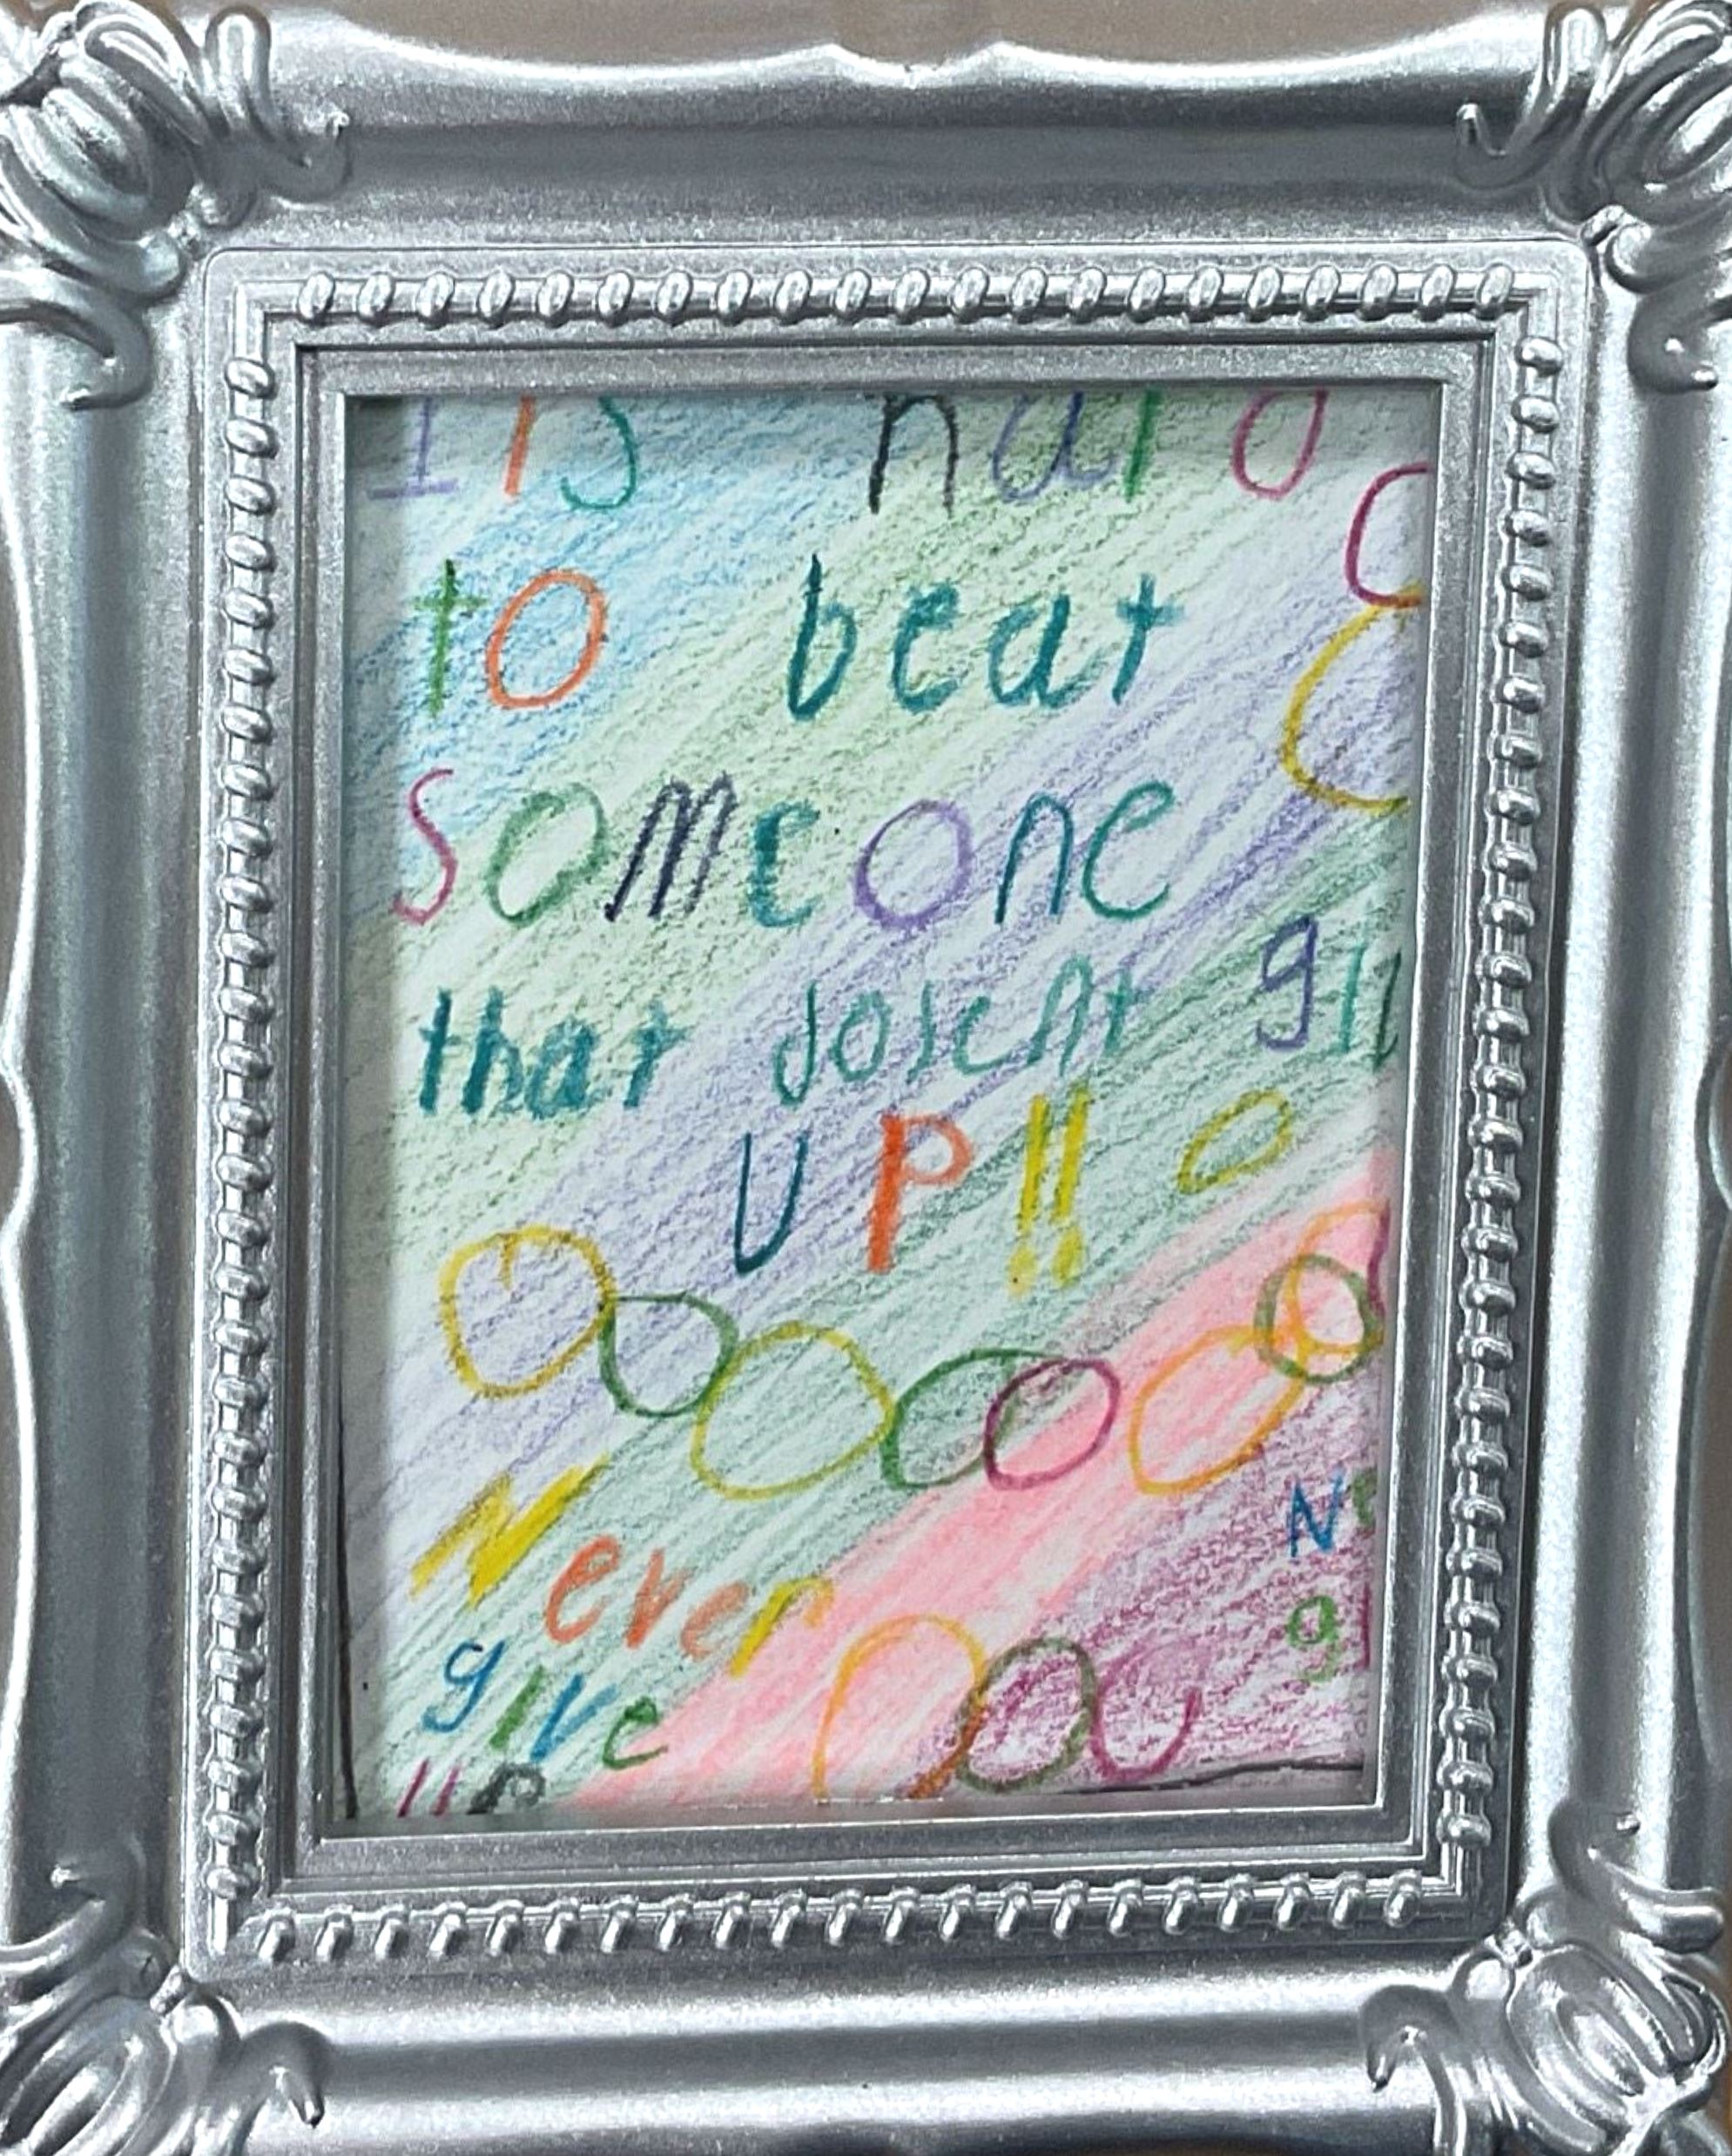 Its hard
to beat
someone
that dosent gi
UP!!
Never
give
up
Ne
gi